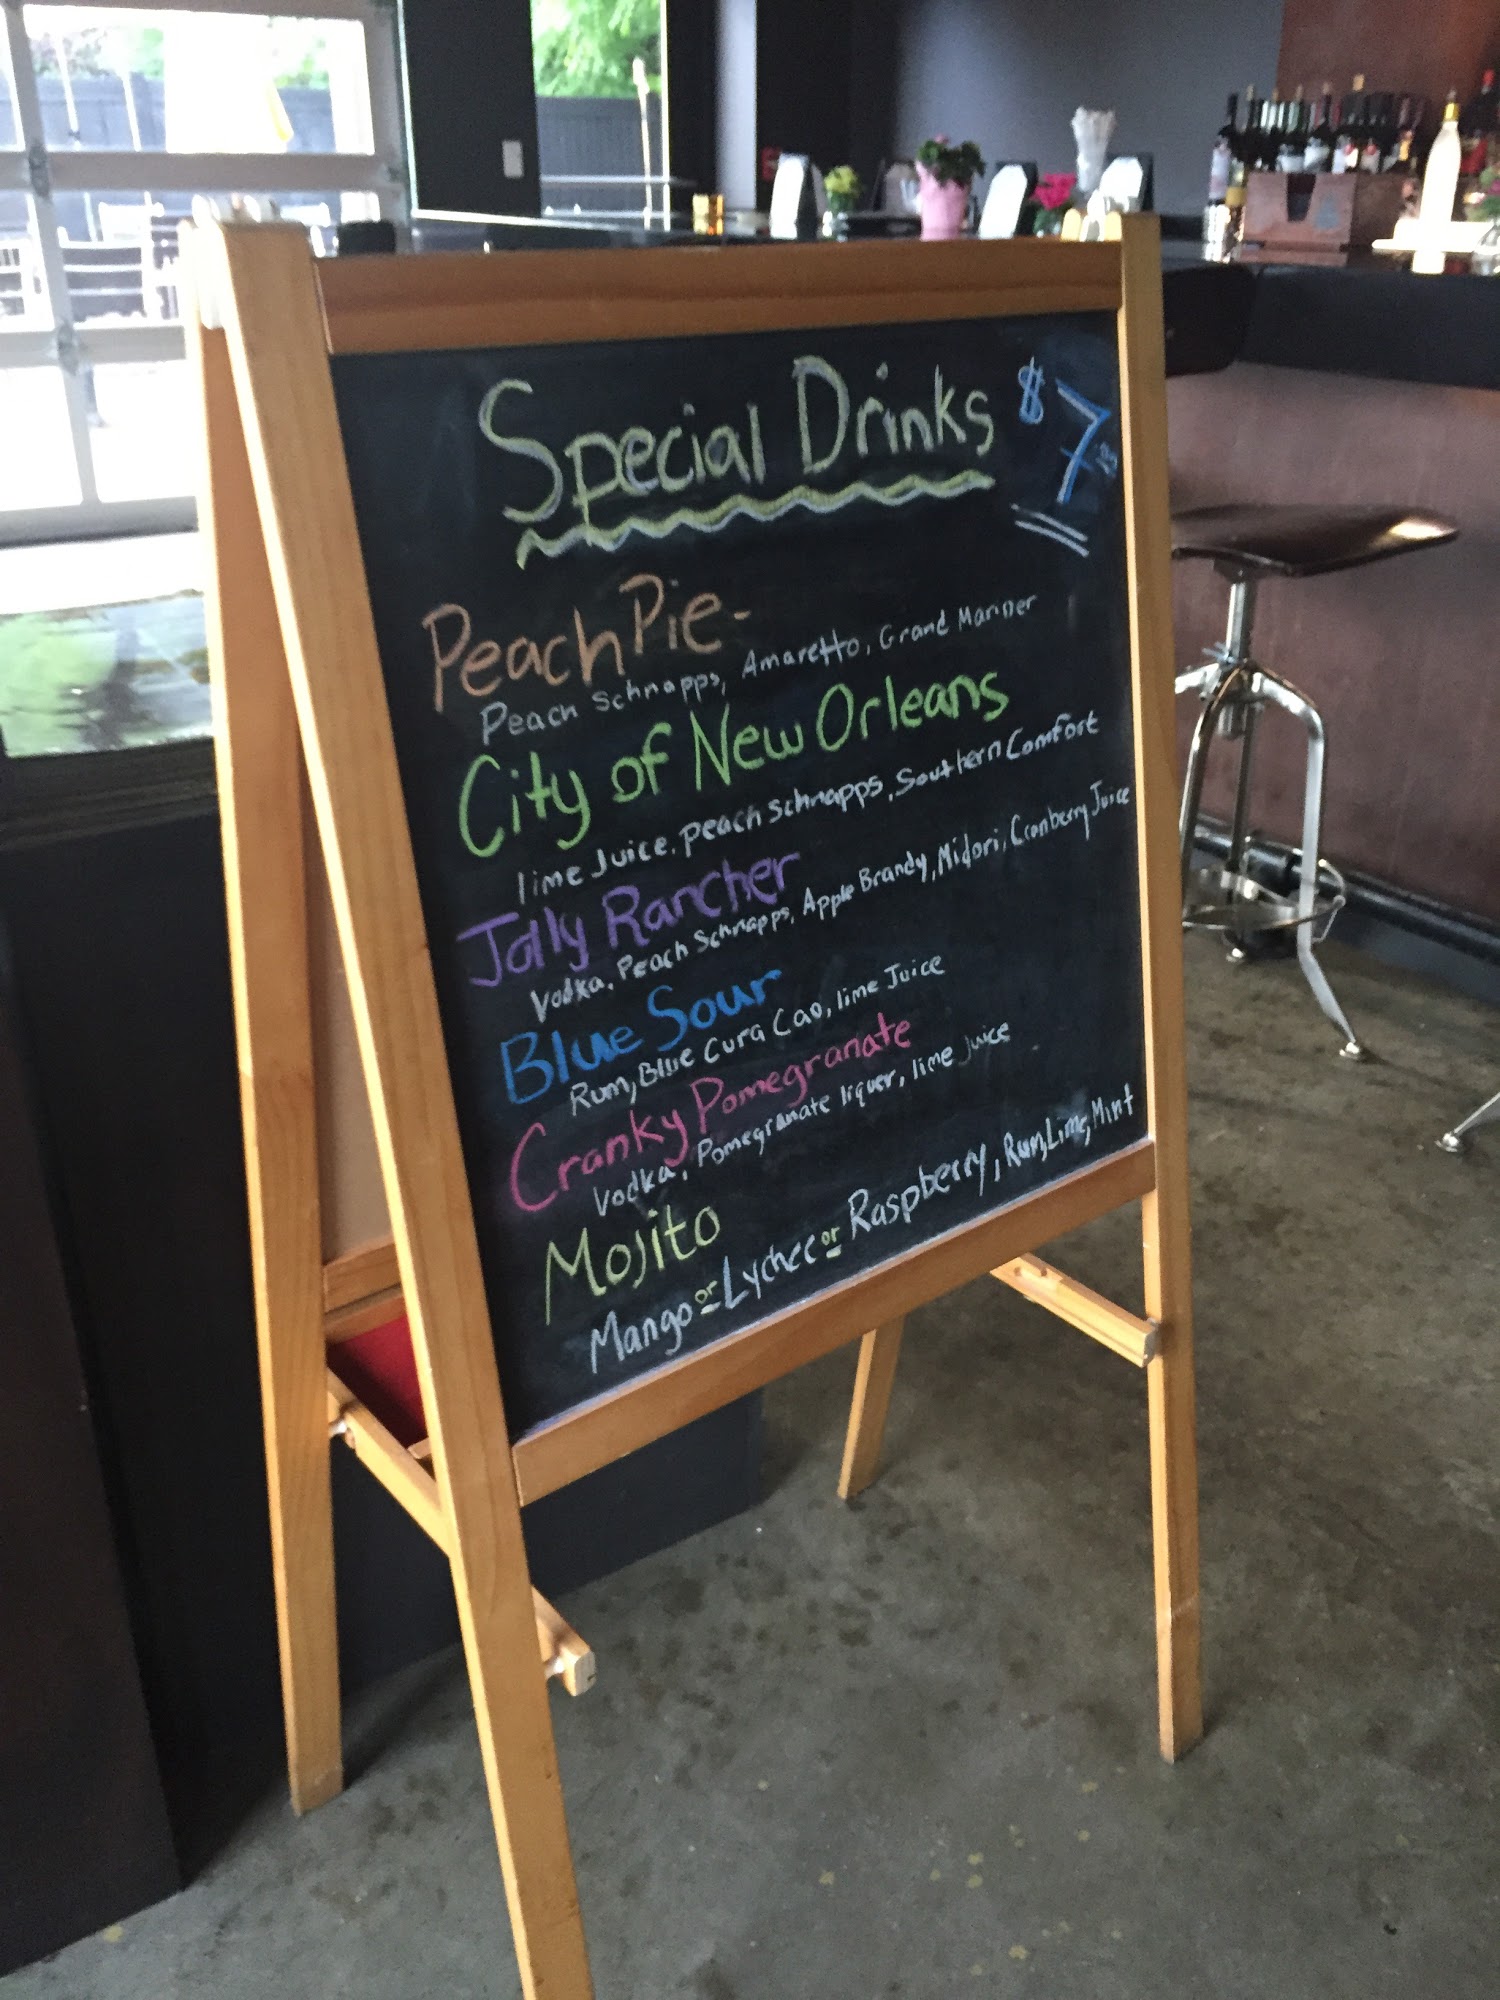 Special Drinks $7
Peach Pie-
Peach Schnapps, Amaretto, Grand Mariner
City of New Orleans
lime Juice, peach Schnapps, Southern Comfort
Jolly Rancher
Vodka, Peach Schnapps, Apple Brandy, Midori, Cranberry Juice
Blue Sour
Rum, Blue Cura Cao, lime Juice
Cranky Pomegranate
Vodka, Pomegranate liquer, lime juice
Mojito
Mango or Lychee or Raspberry, Rum, Lime, Mint